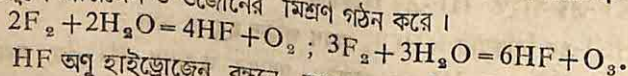 মিশ্রণ গঠন করে।
2F₂+2H₂O=4HF+O₂; 3F₂+3H₂O=6HF+O₃.
HF অণু হাইড্রোজেন